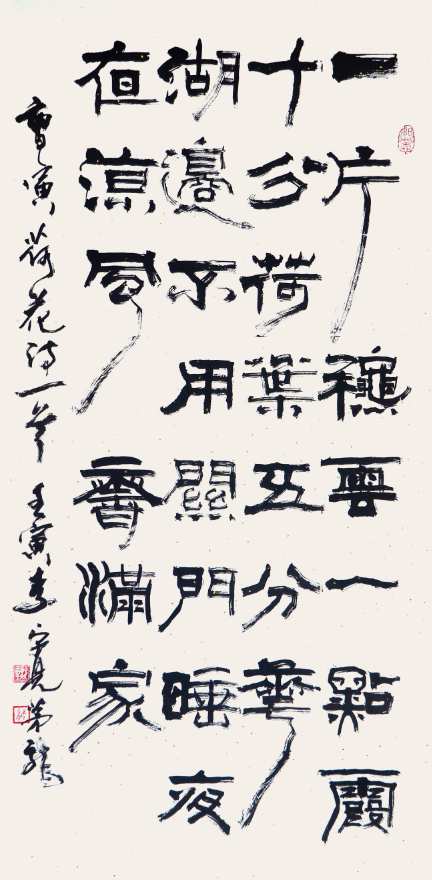 一片龝雲一點霞
十分荷葉五分華
湖邊不用關門睡夜
亱涼風香滿家
曹寅荷花詩一首 壬寅春